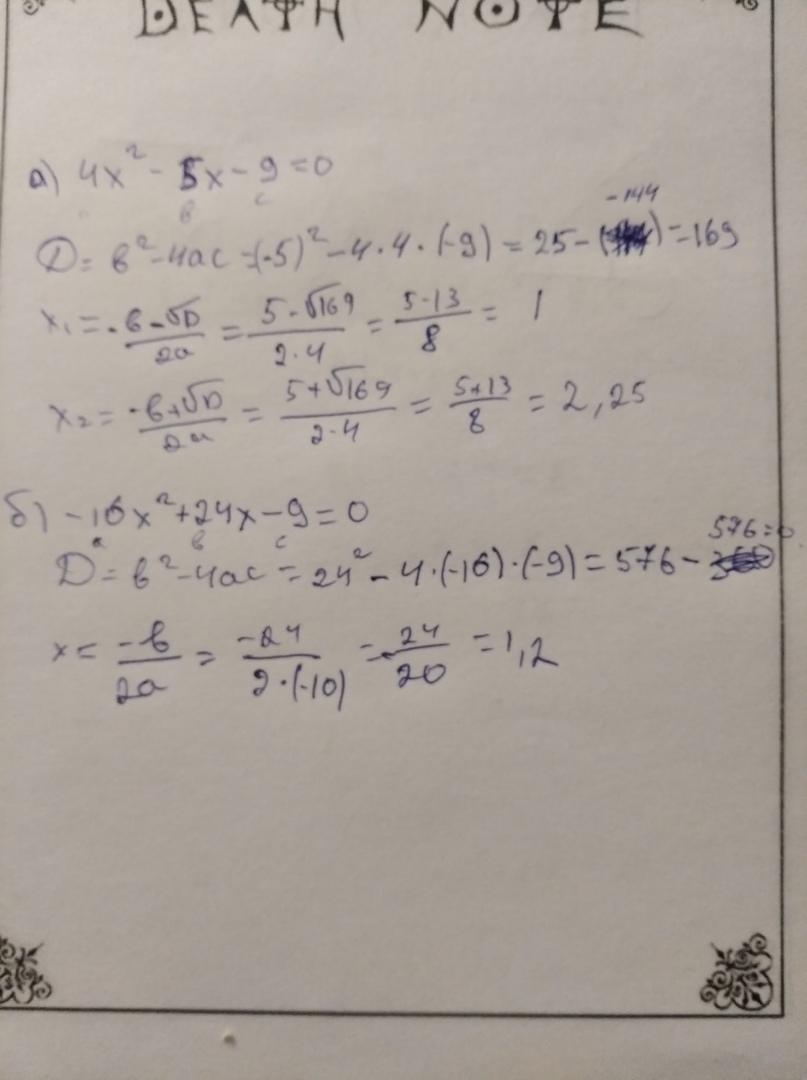 DEATH NOTE
а) 4x² - 5x - 9 = 0
в c
D = в² - 4ac = (-5)² - 4·4·(-9) = 25 - (-144) = 169
x₁ = -в-√D/2a = 5-√169/2·4 = 5-13/8 = 1
x₂ = -в+√D/2a = 5+√169/2·4 = 5+13/8 = 2,25
б) -16x² + 24x - 9 = 0
a в c
D = в² - 4ac = 24² - 4·(-16)·(-9) = 576 - 576 = 0
x = -в/2a = -24/2·(-10) = 24/20 = 1,2